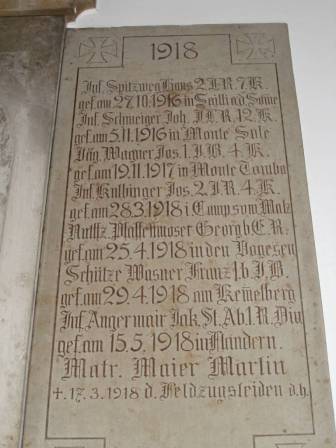 1918
Inf. Spitzweg Hans 2.I.R. 7.K.
gef. am 27.10.1916 in Sailli ad Some
Inf. Schweiger Joh. I.L.R. 12.K.
gef. am 5.11.1916 in Monte Sole
Jäg. Wagner Jos. 1.J.B. 4.K.
gef. am 19.11.1917 in Monte Tomba
Inf. Kalbinger Jos. 2.I.R. 4.K.
gef. am 28.3.1918 i. Camp
Pfaffenmoser Georg b.E.R.
gef. am 25.4.1918 in den Vogesen
Schütze Wasner Franz 1.b.J.B.
gef. am 29.4.1918 am Kem̄elberg
Inf. Angermair Jak. St. Ab. 1.R. Div
gef. am 15.5.1918 in Flandern.
Matr. Maier Martin
+. 17.3.1918 d. Feldzugsleiden d.h.